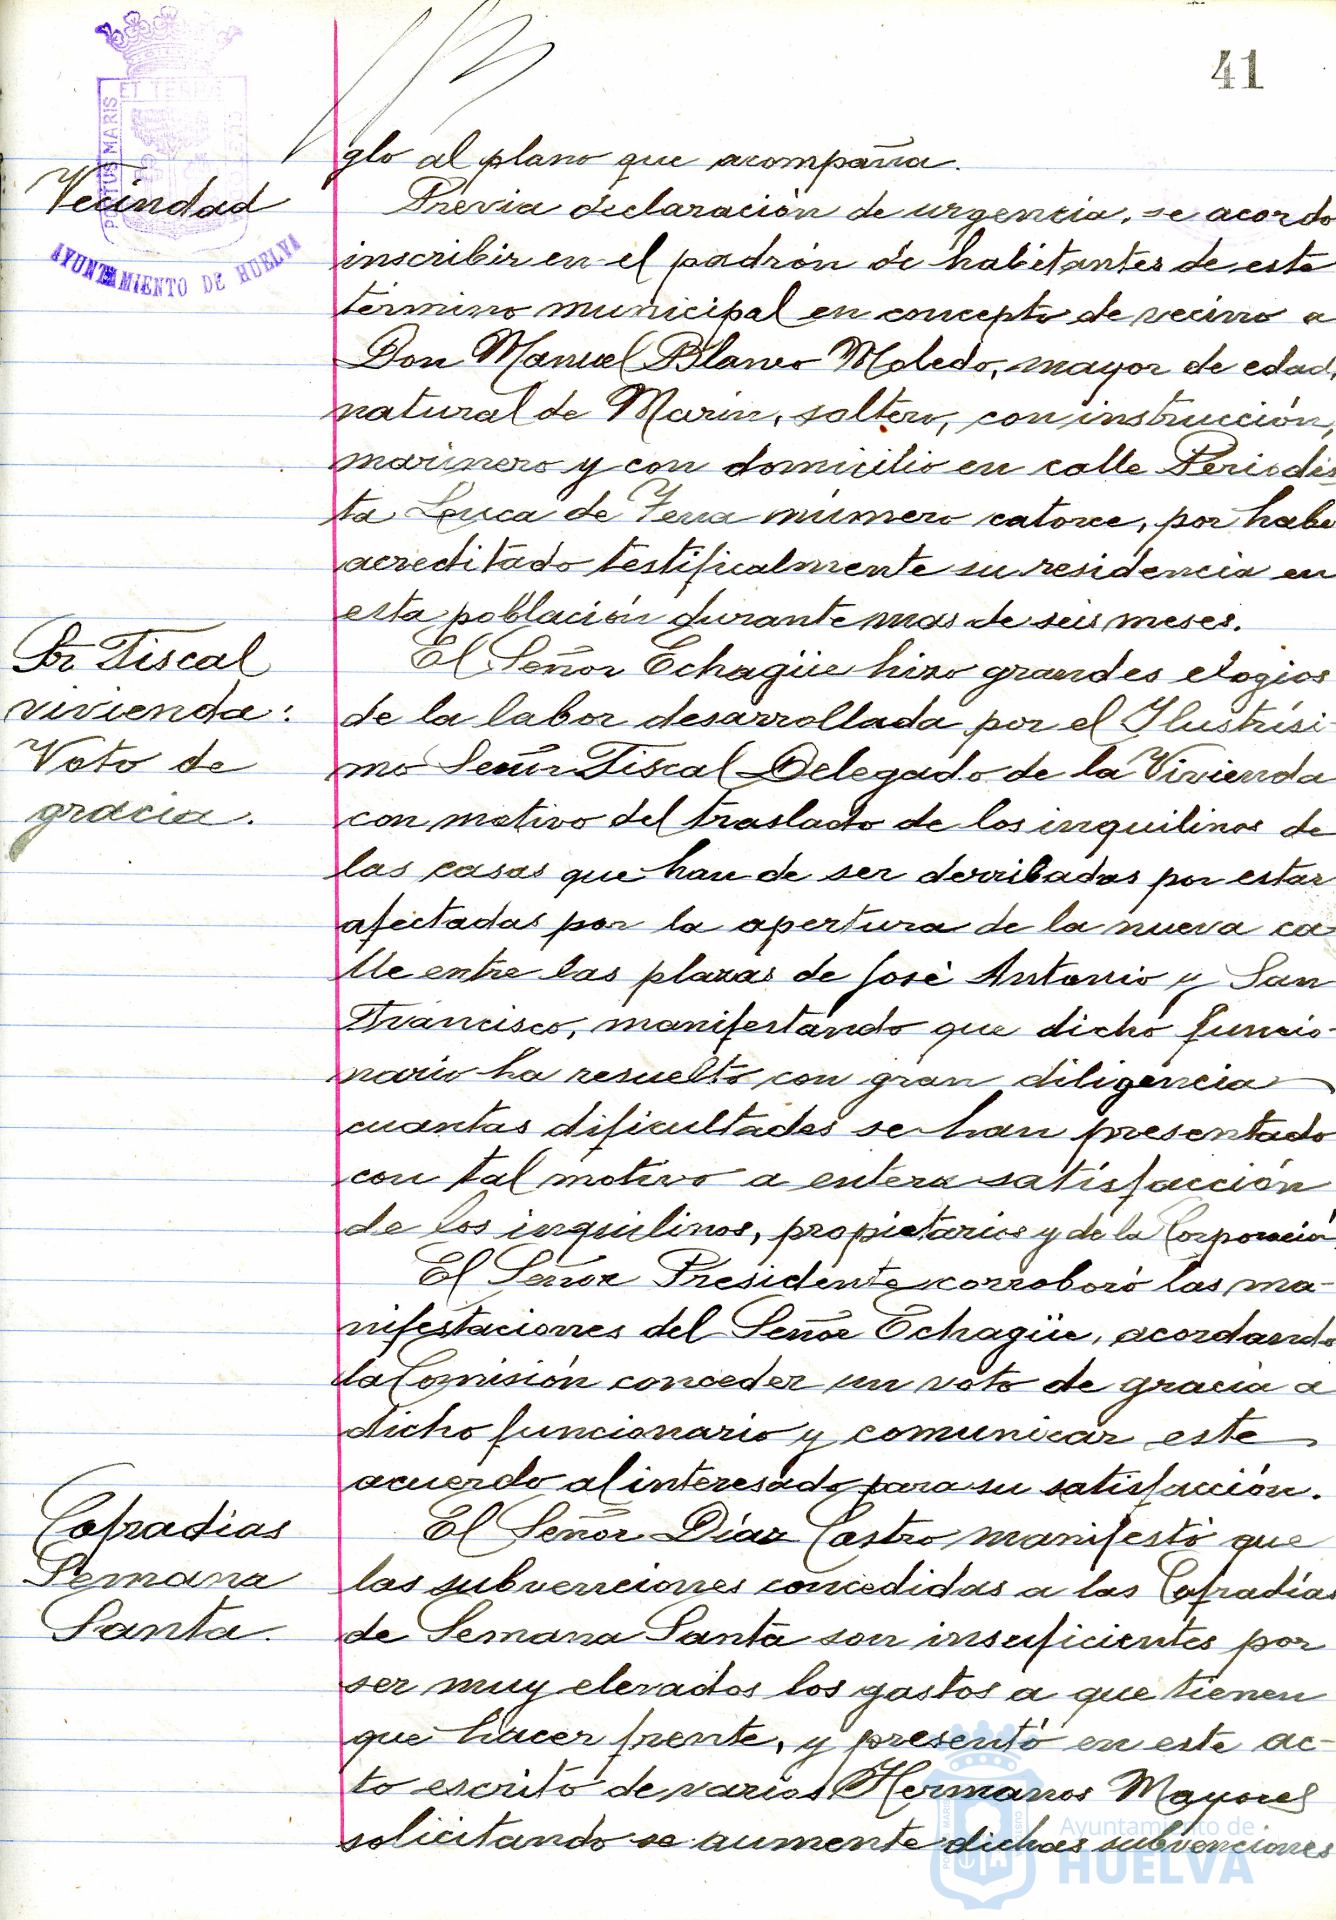 41
PORTUS MARIS
ET TERRÆ
CUSTODIA
AYUNTAMIENTO DE HUELVA
glo al plano que acompaña.
Vecindad
Previa declaración de urgencia, se acordo
inscribir en el padrón de habitantes de este
término municipal en concepto de vecino a
Don Manuel Blanco Moledo, mayor de edad,
natural de Marin, soltero, con instrucción,
marinero y con domicilio en calle Periodis
ta Luca de Tena número catorce, por habe
acreditado testificalmente su residencia en
esta población durante mas de seis meses.
Sr Fiscal
vivienda:
Voto de
gracia.
El Señor Echagüe hizo grandes elogios
de la labor desarrollada por el Ilustrísi-
mo Señor Fiscal Delegado de la Vivienda
con motivo del traslado de los inquilinos de
las casas que han de ser derribadas por estar
afectadas por la apertura de la nueva ca-
lle entre las plazas de José Antonio y San
Francisco, manifestando que dicho funcio-
nario ha resuelto con gran diligencia
cuantas dificultades se han presentado
con tal motivo a entera satisfacción
de los inquilinos, propietarios y de la Corporación
El Señor Presidente corroboró las ma-
nifestaciones del Señor Echagüe, acordando
la Comisión conceder un voto de gracia a
dicho funcionario y comunicar este
acuerdo al interesado para su satisfacción.
Cofradías
Semana
Santa.
El Señor Díaz Castro manifestó que
las subvenciones concedidas a las Cofradías
de Semana Santa son insuficientes por
ser muy elevados los gastos a que tienen
que hacer frente, y presentó en este ac-
to escrito de varios Hermanos Mayores
solicitando se aumente dichas subvenciones
Ayuntamiento de
HUELVA